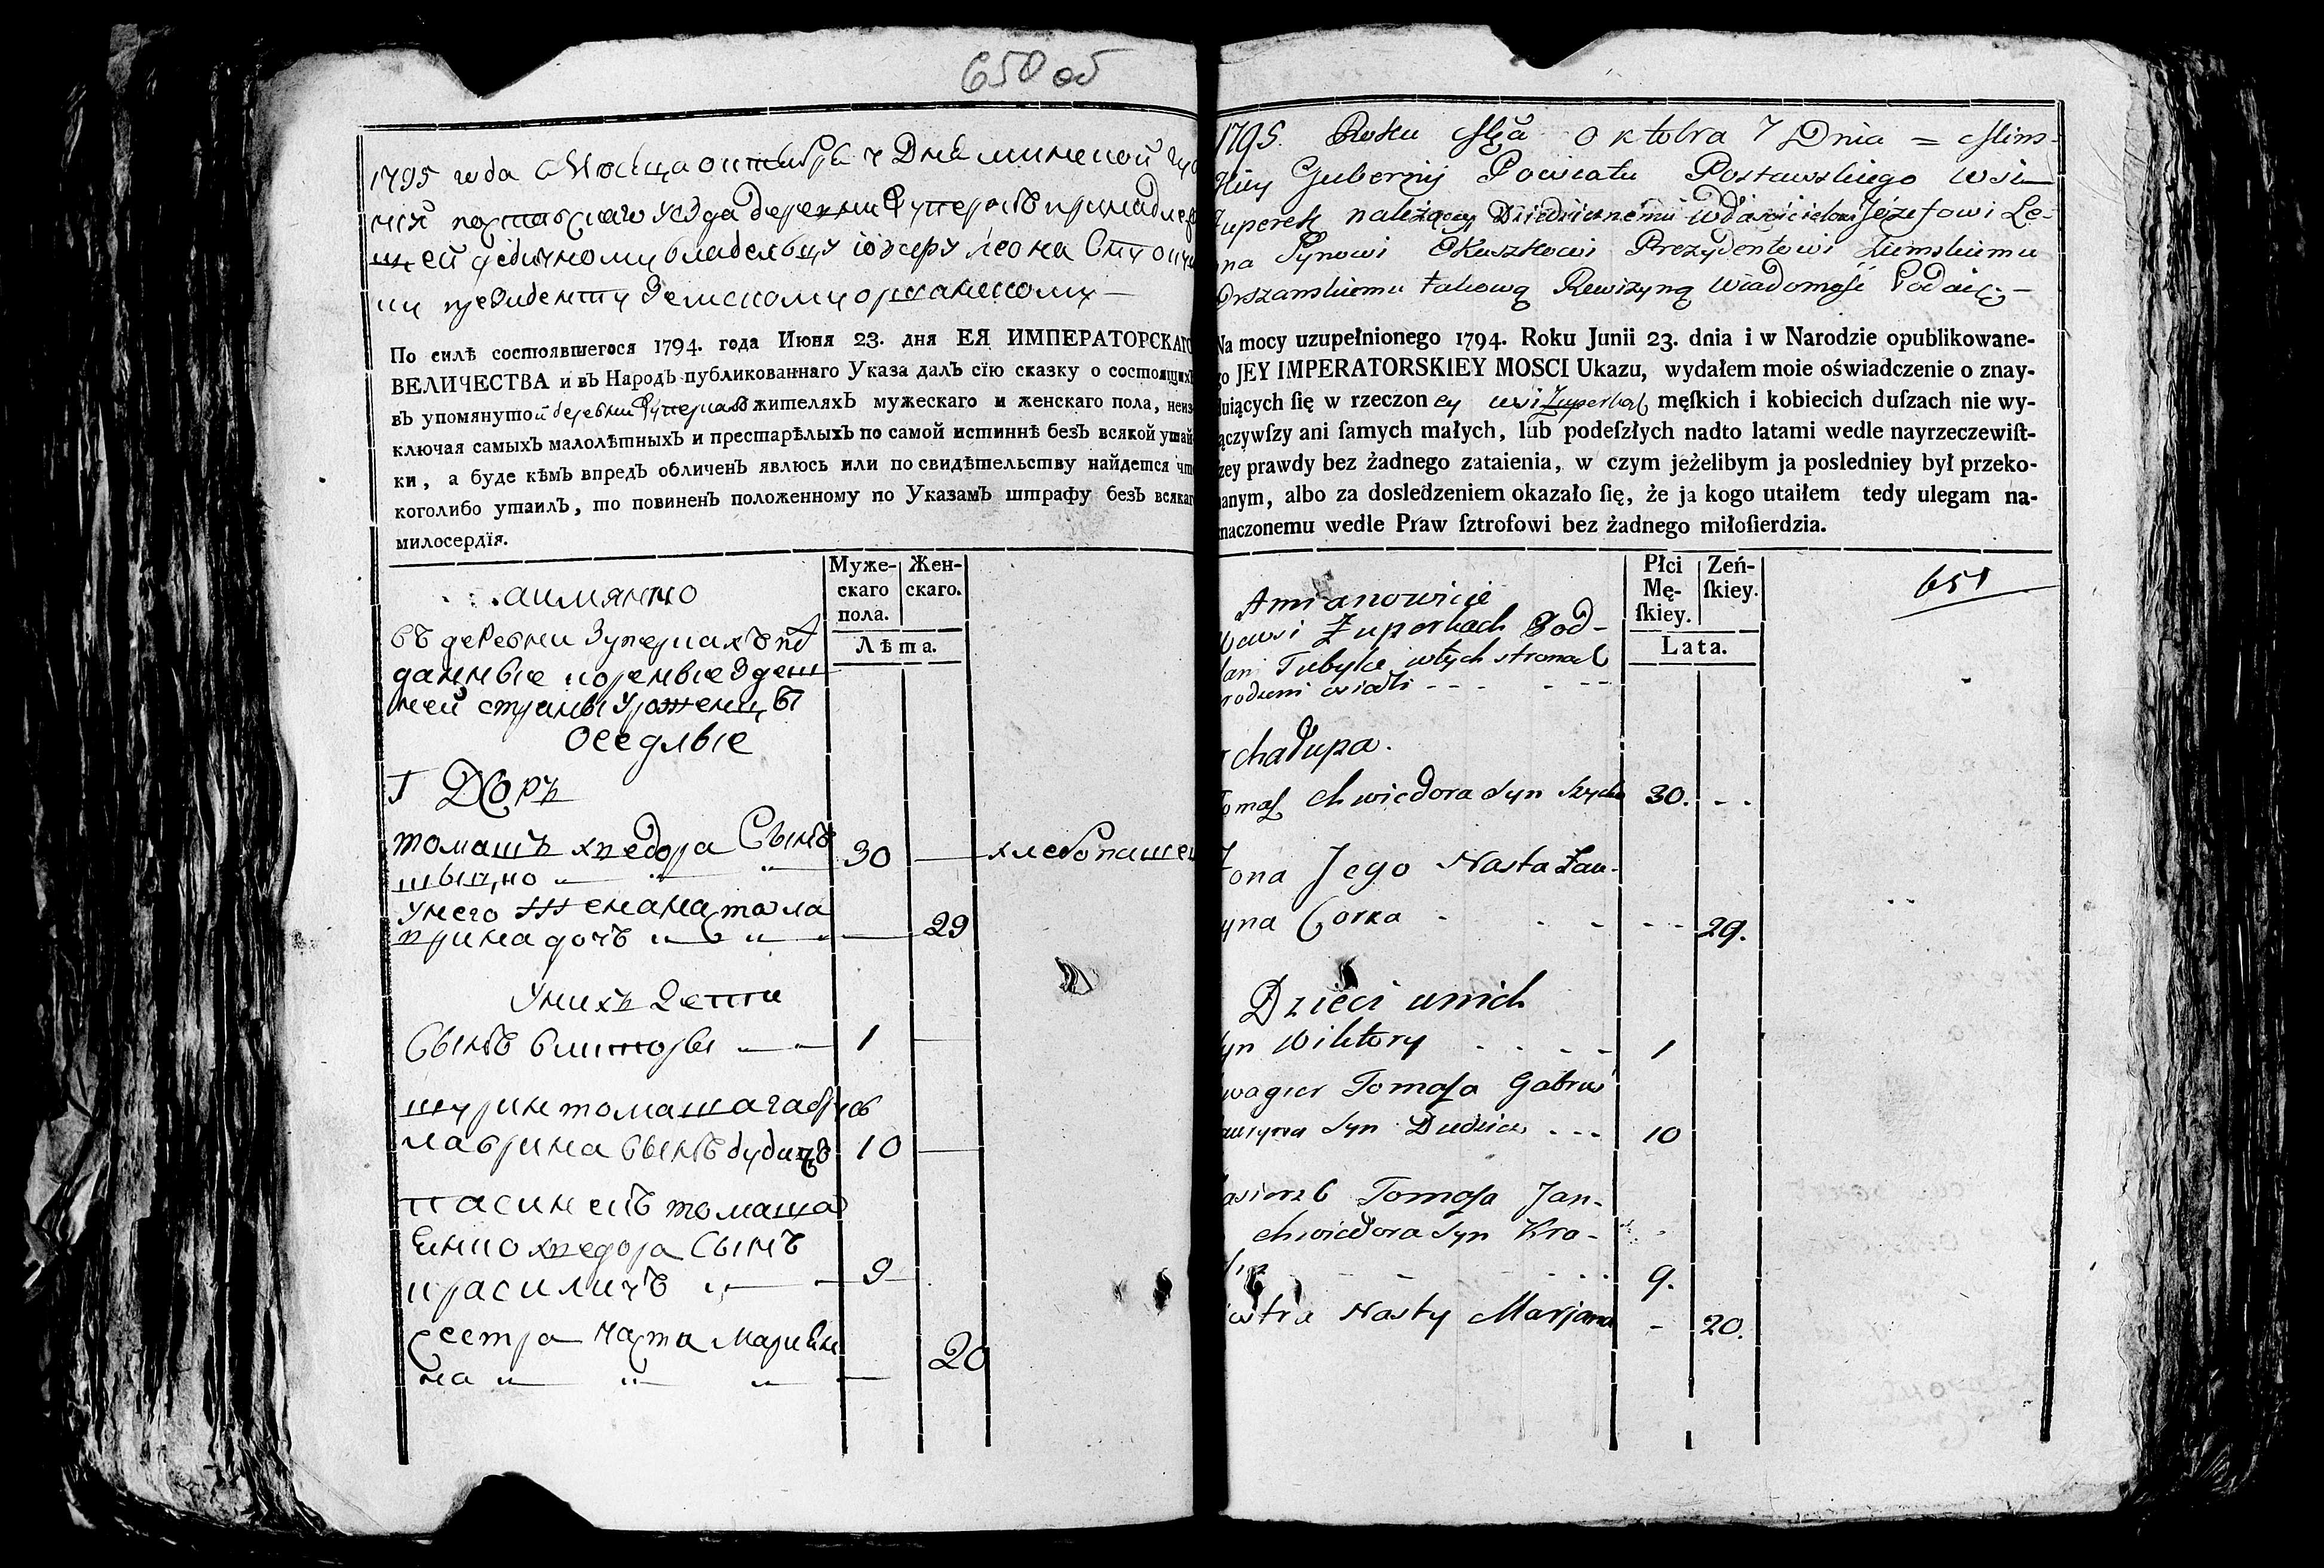 650 об
1795 года Месяца октября 7 Дня минской
поставскаго уезда деревни Зуперокъ
щей дедичному владельцу юзефу леона Сыну
президенту Земскому оршанскому
По силѣ состоявшегося 1794. года Июня 23. дня ЕЯ ИМПЕРАТОРСКАГО
ВЕЛИЧЕСТВА и въ Народъ публикованнаго Указа далъ сїю сказку о состоящихъ
въ упомянутой деревни жителяхъ мужескаго и женскаго пола, неиз
ключая самыхъ малолѣтныхъ и престарѣлыхъ по самой истиннѣ безъ всякой утай
ки, а буде кѣмъ впредъ обличенъ явлюсь или по свидѣтельству найдется что
коголибо утаилъ, то повиненъ положенному по Указамъ штрафу безъ всякаго
милосердїя.
аимянно
Муже-
скаго
пола.
Жен-
скаго.
Лѣта.
въ деревни Зуперкахъ под
данные коренные здеш
ней страны уроженцы
оседлые
1 Дворъ
томашъ хведора Сынъ
30
хлебопашец
у него жена наста ла
врина дочъ
29
у нихъ Дети
Сынъ виктори 1
шуринъ томаша габрусь
лаврина Сынъ 10
пасинокъ томаша
хведора Сынъ
красиличъ 9
сестра насти марьян
на 20
1795. Roku Msca Oktobra 7 Dnia = Mins-
kiey Gubernij Powiatu Postawskiego wsi
Zuperek należącey Dziedzicznemu Właścicielowi Jozefowi Le-
ona Synowi Prezydentowi Ziemskiemu
Orszanskiemu takową Rewizyną wiadomość Podaię –
Na mocy uzupełnionego 1794. Roku Junii 23. dnia i w Narodzie opublikowane-
go JEY IMPERATORSKIEY MOSCI Ukazu, wydałem moie oświadczenie o znay-
duiących ſię w rzeczoney wsi Zuperkach męſkich i kobiecich duſzach nie wy-
łączywſzy ani ſamych małych, lub podeſzłych nadto latami wedle nayrzeczewiſt-
szey prawdy bez żadnego zataienia, w czym jeżelibym ja posledniey był przeko-
nanym, albo za dosledzeniem okazało ſię, że ja kogo utaiłem tedy ulegam na-
znaczonemu wedle Praw ſztrofowi bez żadnego miłoſierdzia.
Amianowicie
Płci
Mę-
ſkiey.
Zeń-
ſkiey.
Lata.
651
wewsi Zuperkach Pod-
dani Tubylce w tych stronach
rodzeni osiadli
chałupa.
Tomasz Chwiedora Syn 30.
Zona Jego Nasta Law-
ryna Corka 29.
Dzieci u nich
Syn Wiktory 1
Szwagier Tomasza Gabrus
Lauryna Syn 10
Pasierzb Tomasza Jan
Chwiedora Syn Kra-
9.
Siostra Nasty Marjana 20.